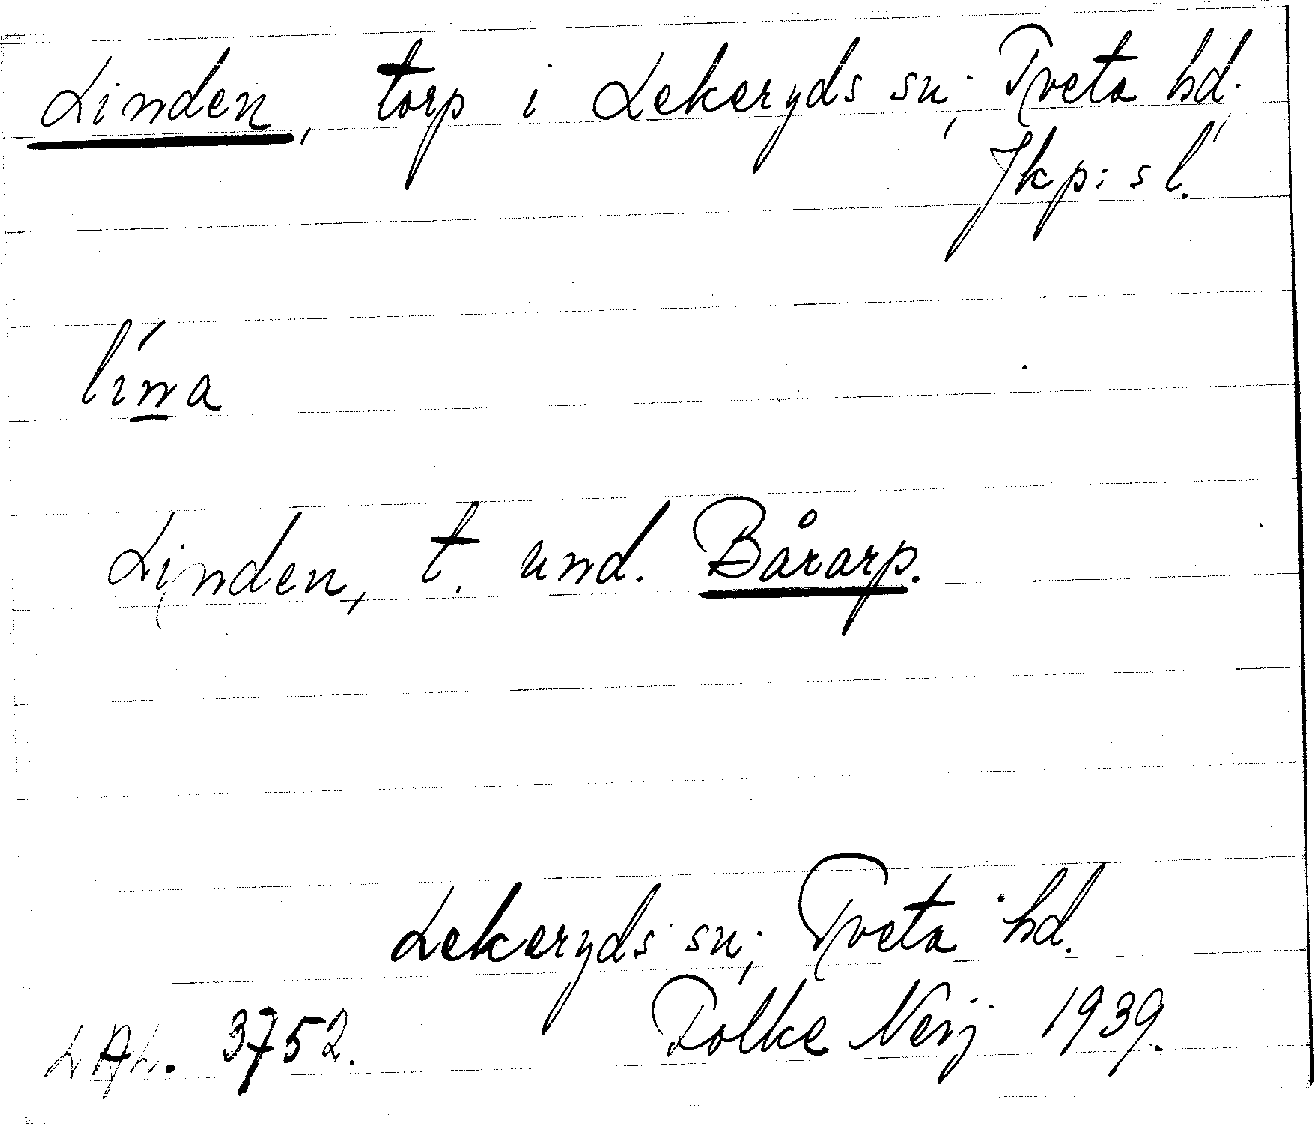 Linden, torp i Lekeryds sn; Tveta hd.
Jkp: s l.
lína
Linden, t. und. Bårarp.
Lekeryds sn; Tveta hd.
LAL. 3752. Folke Nerj 1939.